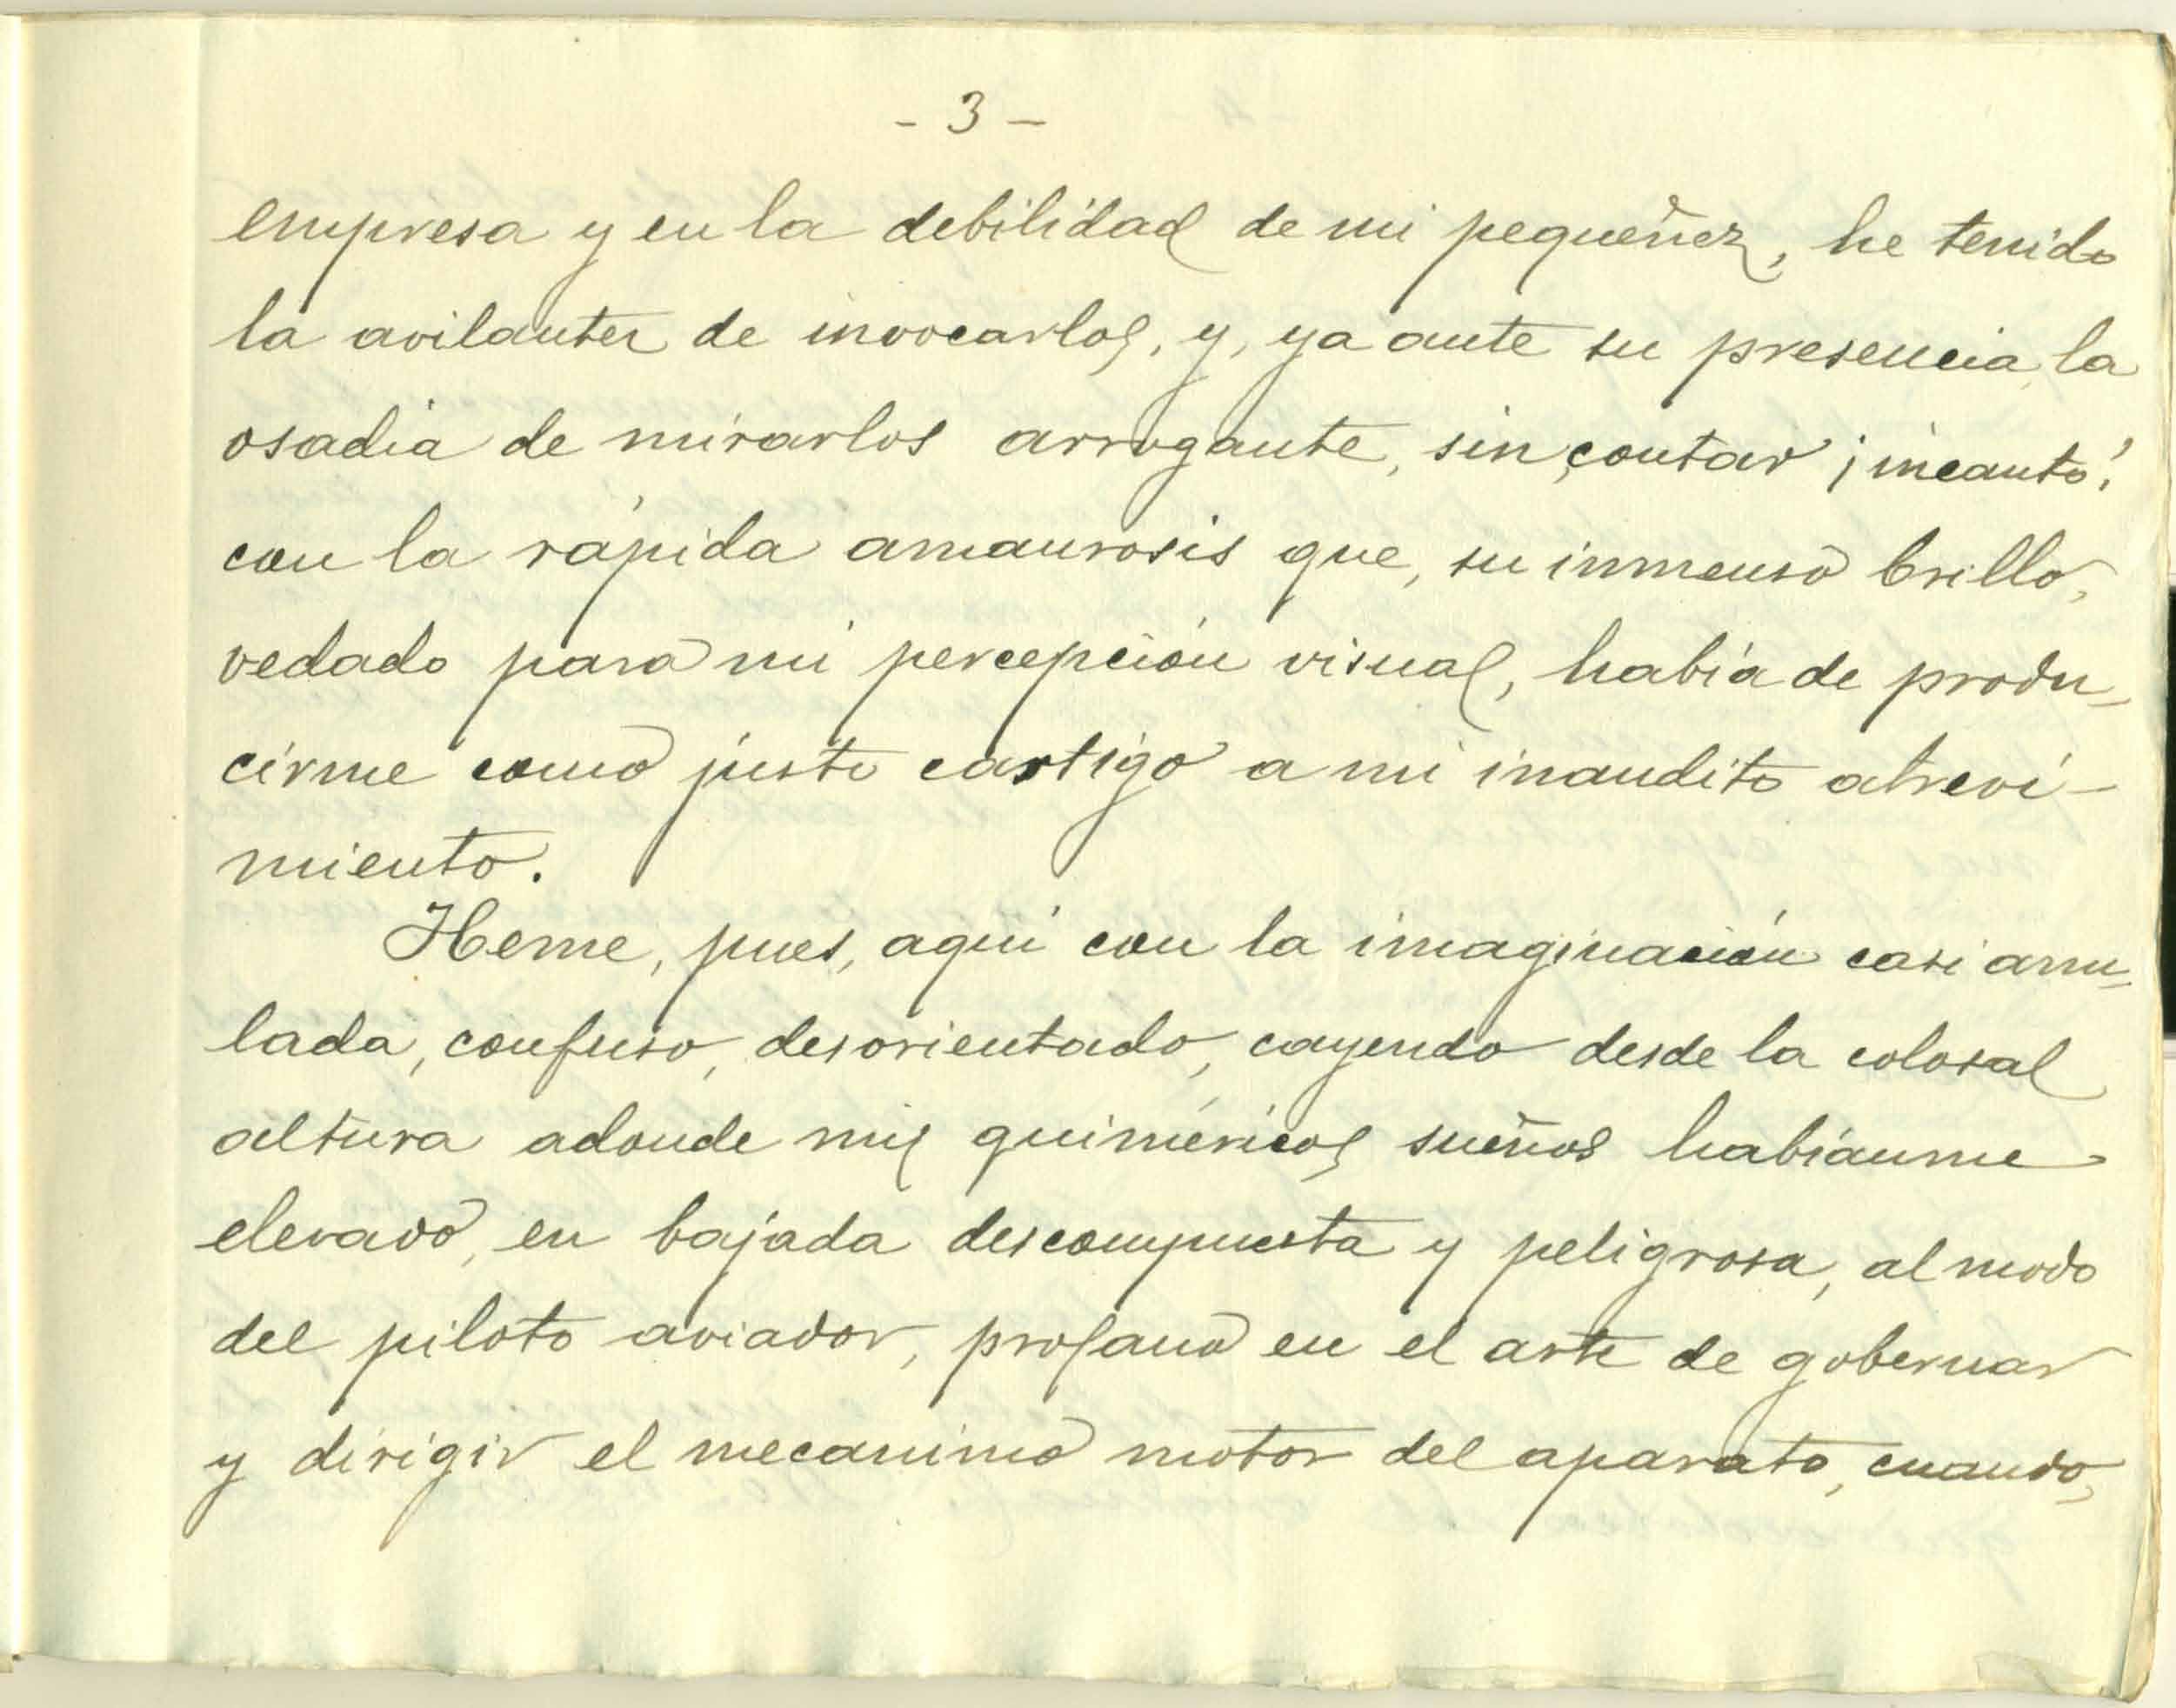 - 3 -
empresa y en la debilidad de mi pequeñez, he tenido
la avilantez de invocarlos, y, ya ante su presencia, la
osadía de mirarlos arrogante, sin contar ¡incauto!
con la rápida amaurosis que, su inmenso brillo,
vedado para mi percepción visual, había de produ-
cirme como justo castigo a mi inaudito atrevi-
miento.
Heme, pues, aquí con la imaginación casi anu-
lada, confuso, desorientado, cayendo desde la colosal
altura adonde mis quiméricos sueños habíanme
elevado, en bajada descompuesta y peligrosa, al modo
del piloto aviador, profano en el arte de gobernar
y dirigir el mecanimo motor del aparato, cuando,